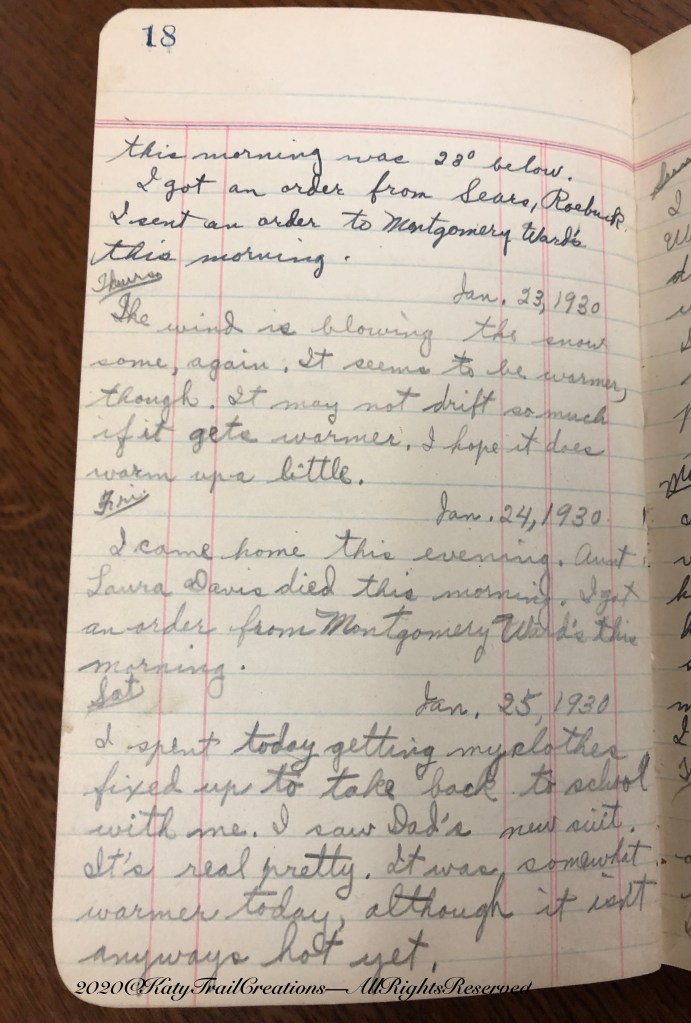 18
this morning was 23° below.
I got an order from Sears, Roebuck.
I sent an order to Montgomery Ward's
this morning.
Thurs
Jan. 23, 1930
The wind is blowing the snow
some, again. It seems to be warmer,
though. It may not drift so much
if it gets warmer. I hope it does
warm up a little.
Fri.
Jan. 24, 1930
I came home this evening. Aunt
Laura Davis died this morning. I got
an order from Montgomery Ward's this
morning.
Sat
Jan. 25, 1930
I spent today getting my clothes
fixed up to take back to school
with me. I saw Dad's new suit.
It's real pretty. It was somewhat
warmer today, although it isn't
anyways hot yet.
2020©KatyTrailCreations—AllRightsReserved